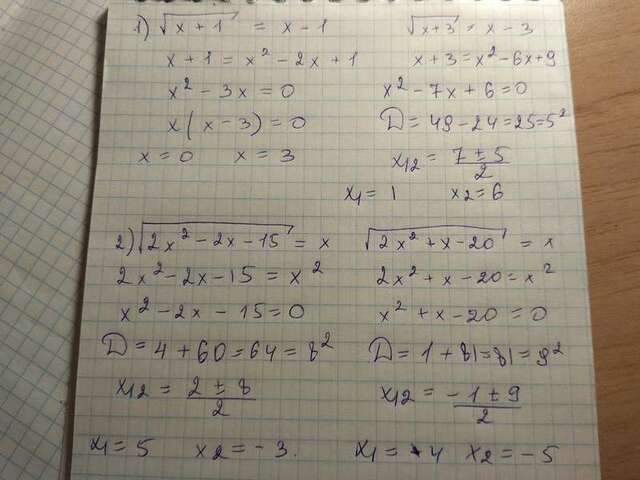 1) √x + 1 = x - 1
x + 1 = x² - 2x + 1
x² - 3x = 0
x(x - 3) = 0
x = 0 x = 3
√x + 3 = x - 3
x + 3 = x² - 6x + 9
x² - 7x + 6 = 0
D = 49 - 24 = 25 = 5²
x₁,₂ = (7 ± 5)/2
x₁ = 1 x₂ = 6
2) √2x² - 2x - 15 = x
2x² - 2x - 15 = x²
x² - 2x - 15 = 0
D = 4 + 60 = 64 = 8²
x₁,₂ = (2 ± 8)/2
x₁ = 5 x₂ = -3.
√2x² + x - 20 = x
2x² + x - 20 = x²
x² + x - 20 = 0
D = 1 + 81 = 81 = 9²
x₁,₂ = (-1 ± 9)/2
x₁ = 4 x₂ = -5